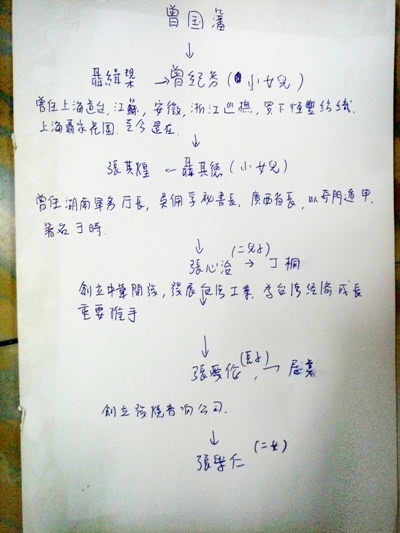 曾国藩
↓
聶緝槼 → 曾紀芳 (小女兒)
曾任上海道台, 江蘇, 安徽, 浙江巡撫, 買下恆豐紡織
上海聶家花園. 至今還在.
↓
張其煌 ← 聶其德 (小女兒)
曾任湖南軍務厅長, 吳佩孚秘書長, 廣西省長, 以奇門遁甲,
著名于時.
↓ (二兒子)
張心治 → 丁桐
創立中華開發, 發展台湾工業, 為台湾經濟成長
重要推手
↓
(長子)
張 →
創立 音响公司.
↓
張學仁 (二女)